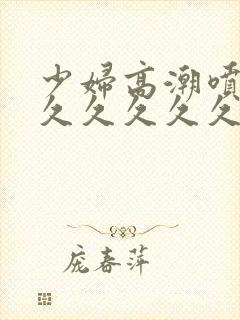 少婦高潮噴
久久久久久
庞春萍